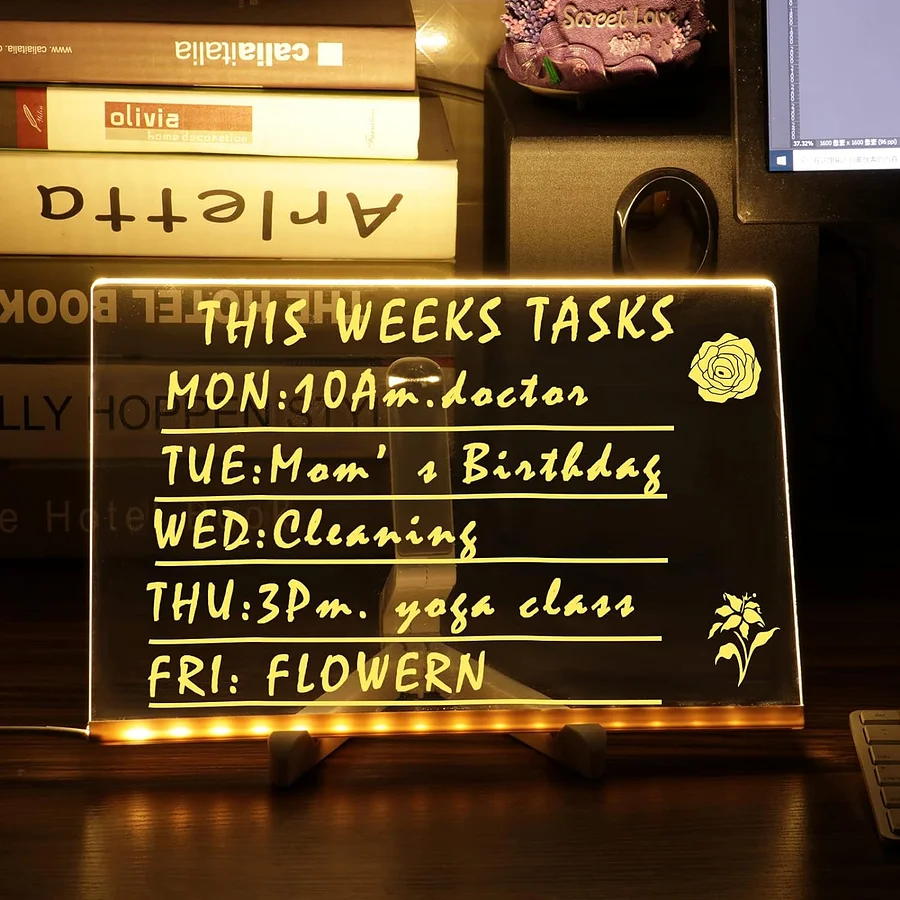 www.caliaitalia.
caliaitalia
olivia
home decoration
Arletta
THE HOTEL BOOK
LLY HOPPEN STY
e Hotel Book
Sweet Love
37.32%
1600 像素 x 1600 像素 (96 ppi)
THIS WEEKS TASKS
MON:10Am.doctor
TUE:Mom's Birthdag
WED:Cleaning
THU:3Pm. yoga class
FRI: FLOWERN